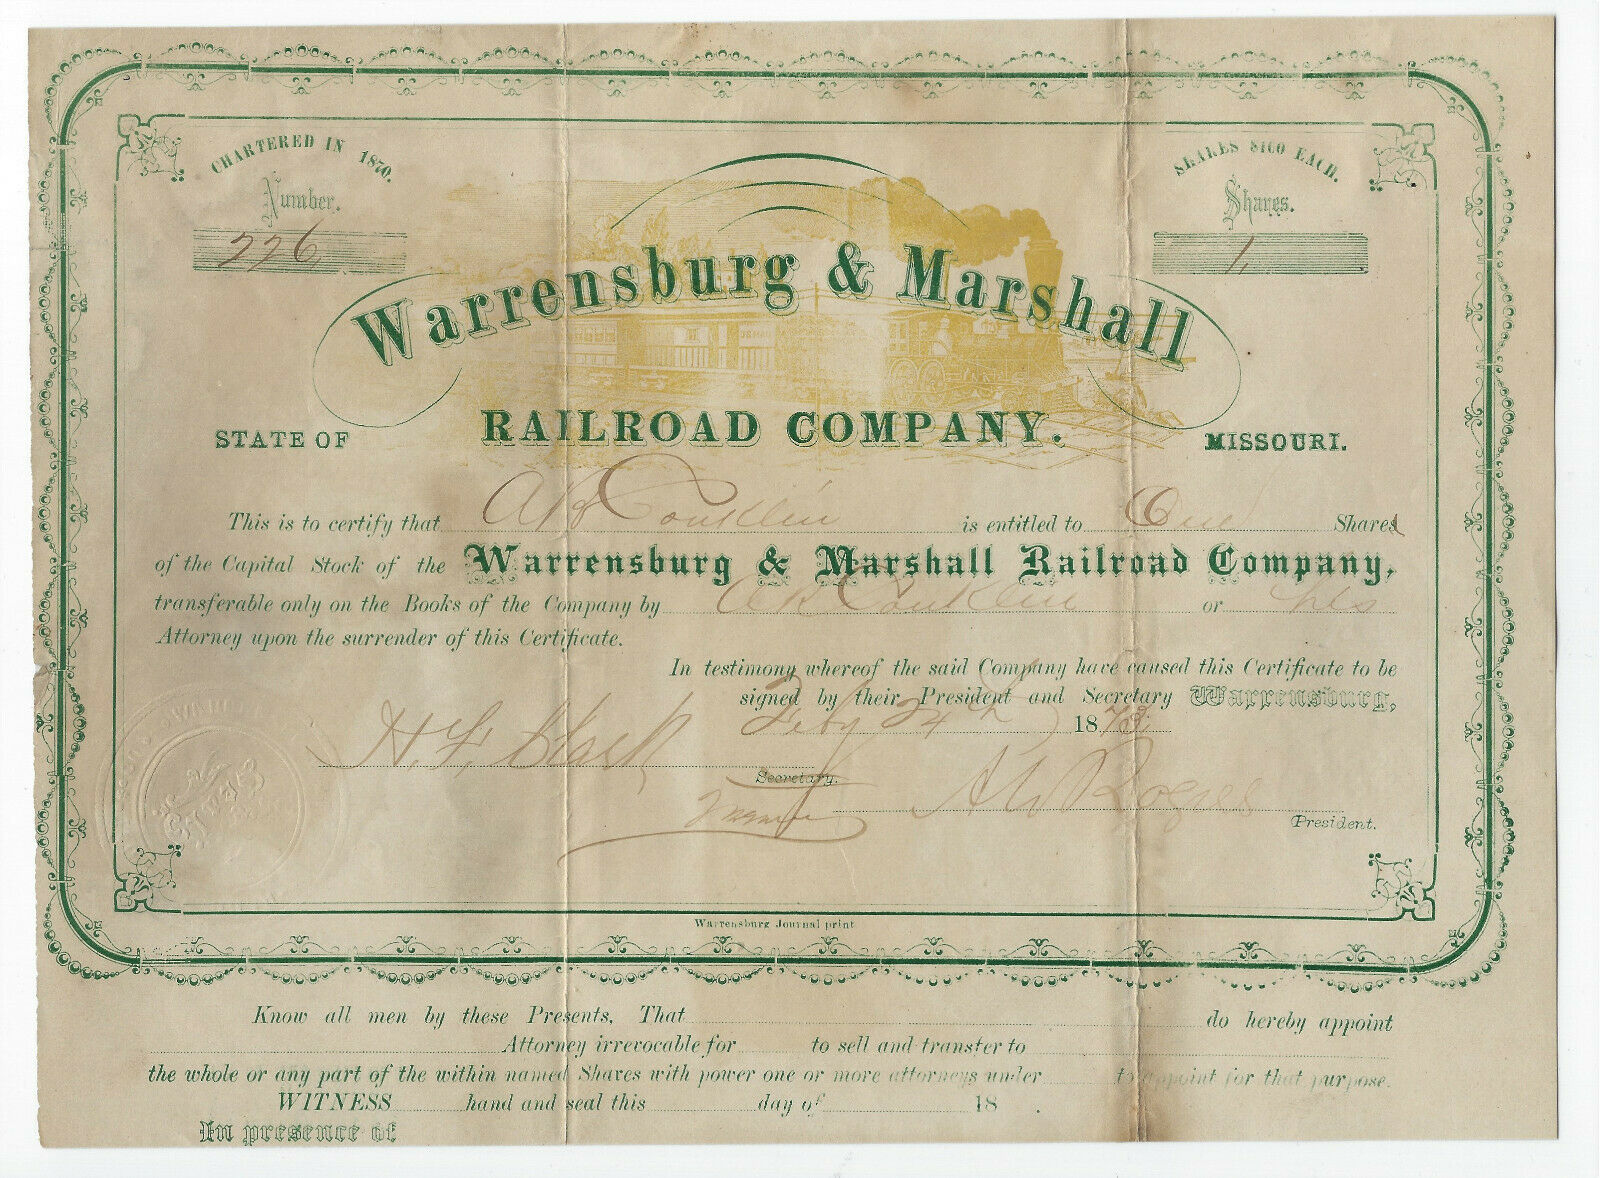 CHARTERED IN 1870.
Number.
226
SHARES $100 EACH.
Shares.
1
Warrensburg & Marshall
STATE OF RAILROAD COMPANY. MISSOURI.
This is to certify that A B Conklin is entitled to One Shares
of the Capital Stock of the Warrensburg & Marshall Railroad Company,
transferable only on the Books of the Company by A B Conklin or his
Attorney upon the surrender of this Certificate.
In testimony whereof the said Company have caused this Certificate to be
signed by their President and Secretary Warrensburg,
Feby 24th 1873.
H. F. Clark,
Secretary.
A W Rogers
President.
Warrensburg Journal print
Know all men by these Presents, That do hereby appoint
Attorney irrevocable for to sell and transfer to
the whole or any part of the within named Shares with power one or more attorneys under to appoint for that purpose.
WITNESS hand and seal this day of 18 .
In presence of